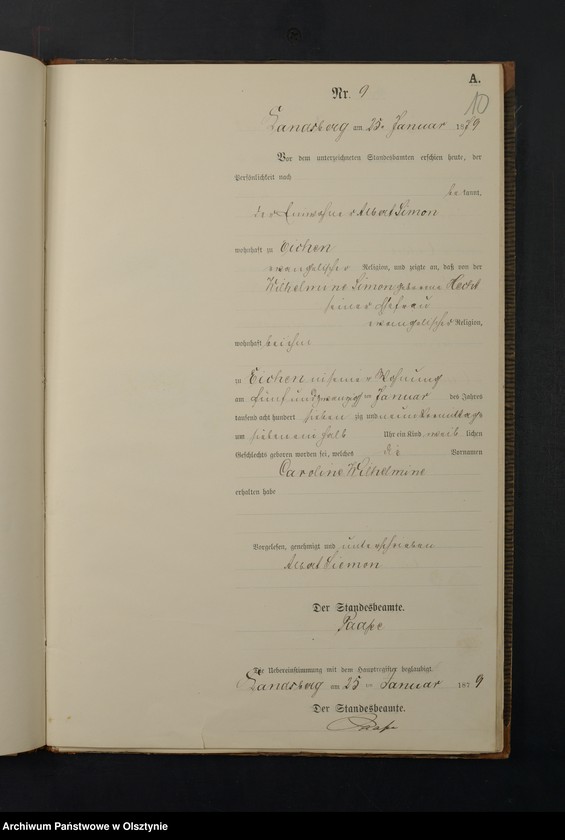 A.
10
Nr. 9
Landsberg am 25. Januar 1879
Vor dem unterzeichneten Standesbeamten erschien heute, der
Persönlichkeit nach
be kannt,
der Einwohner Albert Simon
wohnhaft zu Eichen
evangelischer Religion, und zeigte an, daß von der
Wilhelmine Simon geborene Hecht
seiner Ehefrau
evangelischer Religion,
wohnhaft bei ihm
zu Eichen in seiner Wohnung
am fünf und zwanzigsten Januar des Jahres
tausend acht hundert sieben zig und neun Vormittags
um sieben ein halb Uhr ein Kind weib lichen
Geschlechts geboren worden sei, welches die Vornamen
Caroline Wilhelmine
erhalten habe
Vorgelesen, genehmigt und unterschrieben
Albert Siemon
Der Standesbeamte.
Paape
Die Uebereinstimmung mit dem Hauptregister beglaubigt.
Landsberg am 25 ten Januar 1879
Der Standesbeamte.
Paape
Archiwum Państwowe w Olsztynie